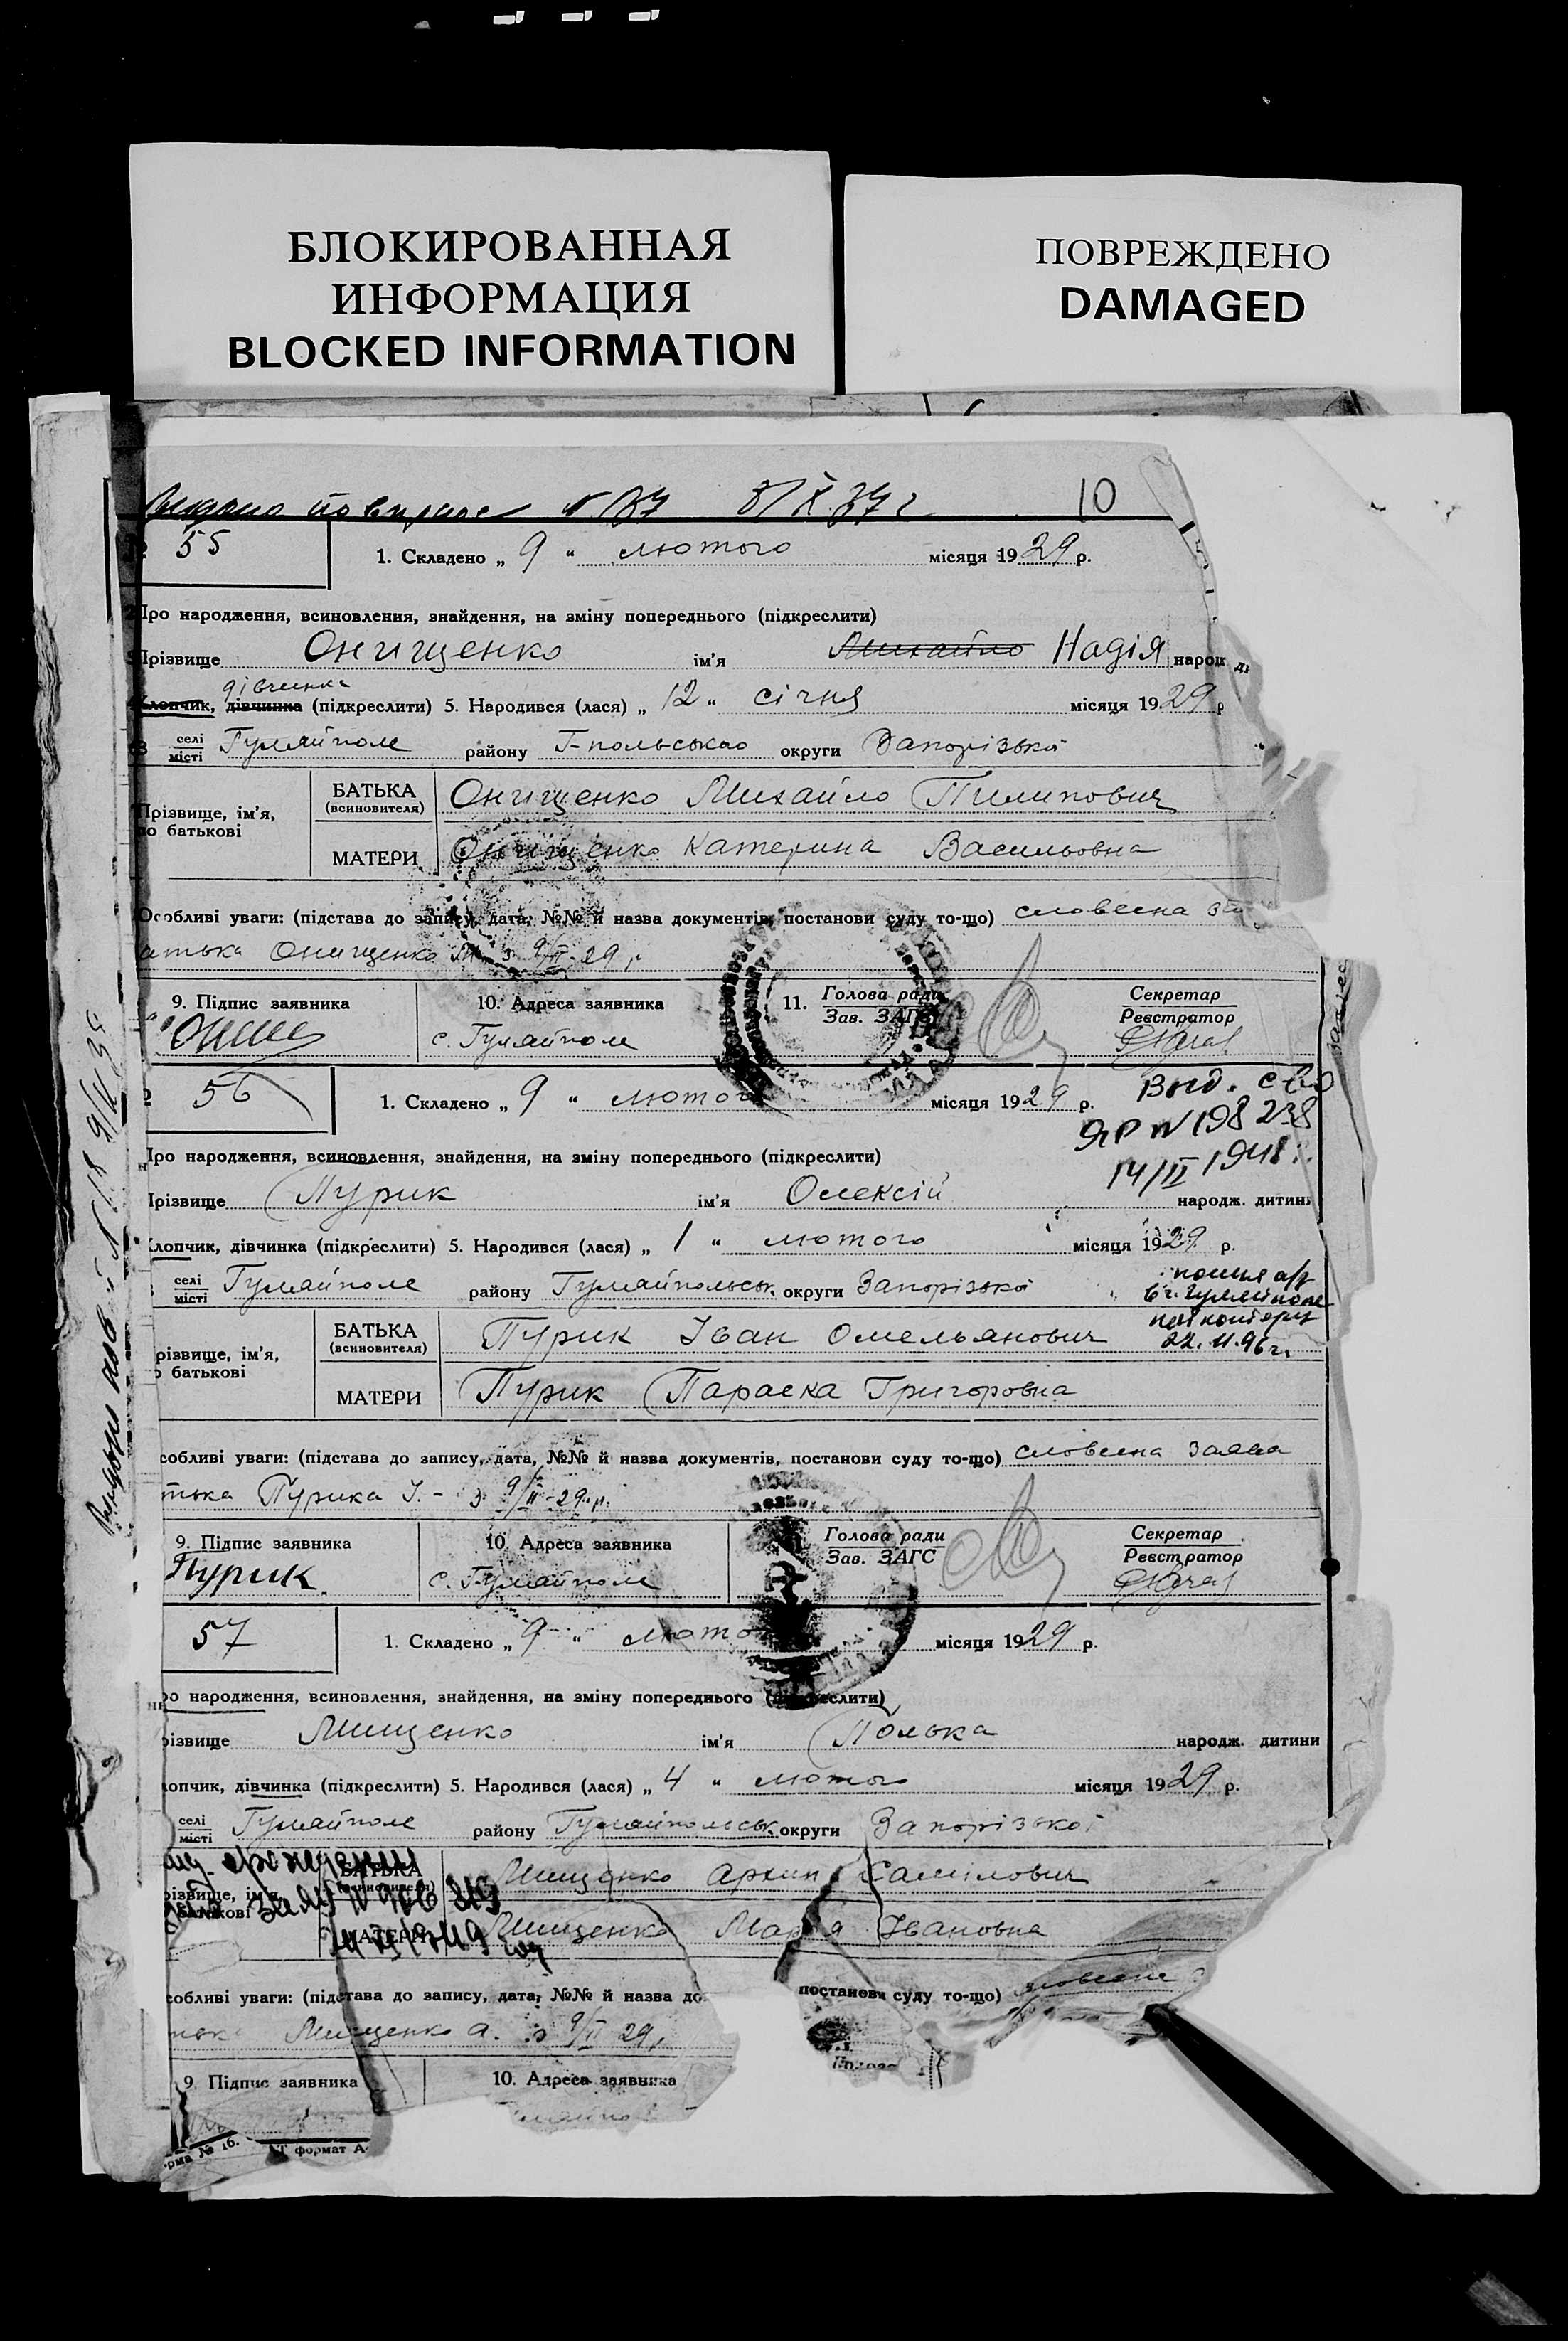 БЛОКИРОВАННАЯ
ИНФОРМАЦИЯ
BLOCKED INFORMATION
ПОВРЕЖДЕНО
DAMAGED
10
55
1. Складено „ 9 “ лютого місяця 1929 р.
Про народження, всиновлення, знайдення, на зміну попереднього (підкреслити)
Прізвище Онищенко ім'я Михайло Надія народж ди
дівчинка
Хлопчик, дівчинка (підкреслити) 5. Народився (лася) „ 12 “ січня місяця 1929 р
В селі місті Гуляйполе району Г-польського округи Запорізької
Прізвище, ім'я, по батькові
БАТЬКА (всиновителя) Онищенко Михайло Пилипович
МАТЕРИ Онищенко Катерина Васильовна
Особливі уваги: (підстава до запису, дата, №№ й назва документів, постанови суду то-що) словесна за
батька Онищенко М. з 9/II-29 р.
9. Підпис заявника 10. Адреса заявника 11. Голова ради Зав. ЗАГС Секретар Реєстратор
с. Гуляйполе
56
1. Складено „ 9 “ лютого місяця 1929 р.
Выд. св-во
ЯР № 198238
14/II 1948
Про народження, всиновлення, знайдення, на зміну попереднього (підкреслити)
Прізвище Пурик ім'я Олексій народж. дитини
Хлопчик, дівчинка (підкреслити) 5. Народився (лася) „ 1 “ лютого місяця 1929 р.
селі місті Гуляйполе району Гуляйпольськ. округи Запорізької
22.11.96г.
Прізвище, ім'я, по батькові
БАТЬКА (всиновителя) Пурик Іван Омельянович
МАТЕРИ Пурик Параска Григоровна
собливі уваги: (підстава до запису, дата, №№ й назва документів, постанови суду то-що) словесна заява
тька Пурика І. - з 9/II-29 р.
9. Підпис заявника 10. Адреса заявника Голова ради Зав. ЗАГС Секретар Реєстратор
Пурик с. Гуляйполе
57
1. Складено „ 9 “ люто місяця 1929 р.
ро народження, всиновлення, знайдення, на зміну попереднього (підкреслити)
різвище Мищенко ім'я Полька народж. дитини
лопчик, дівчинка (підкреслити) 5. Народився (лася) „ 4 “ лютого місяця 1929 р.
селі місті Гуляйполе району Гуляйпольськ. округи Запорізької
різвище, ім'я батькові
БАТЬКА Мищенко Архип Самілович
МАТЕРИ Мищенко Марія Івановна
собливі уваги: (підстава до запису, дата, №№ й назва до постанови суду то-що) словесна
тька Мищенко А. з 9/II 29 р
9. Підпис заявника 10. Адреса заявника
орма № 16. Т формат А